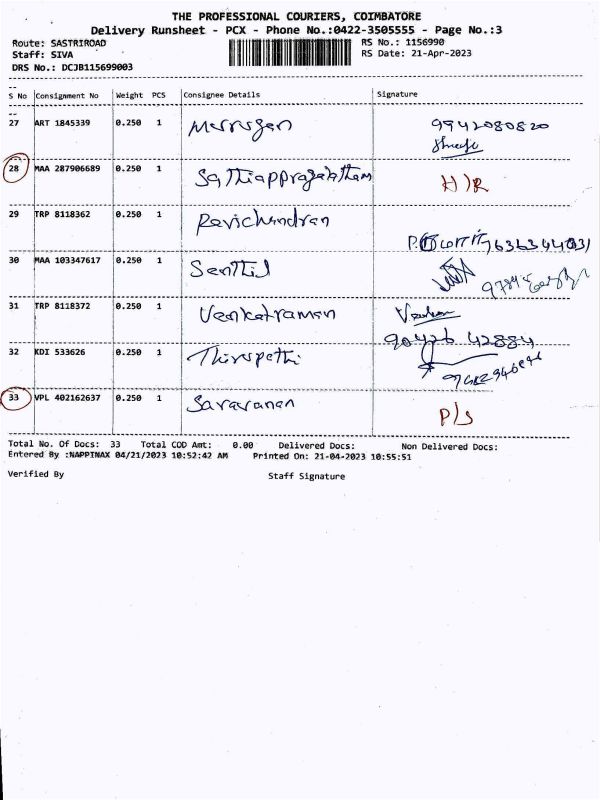 THE PROFESSIONAL COURIERS, COIMBATORE
Delivery Runsheet - PCX - Phone No.:0422-3505555 - Page No.:3
Route: SASTRIROAD RS No.: 1156990
Staff: SIVA RS Date: 21-Apr-2023
DRS No.: DCJB115699003
S No Consignment No Weight PCS Consignee Details Signature
27 ART 1845339 0.250 1 Murugan 9942080820
28 MAA 287906689 0.250 1 H/R
29 TRP 8118362 0.250 1 Ravichandran
30 MAA 103347617 0.250 1 Senthil
31 TRP 8118372 0.250 1 Venkatraman
90426 42884
32 KDI 533626 0.250 1 Thirupathi
33 VPL 402162637 0.250 1 Saravanan P/S
Total No. Of Docs: 33 Total COD Amt: 0.00 Delivered Docs: Non Delivered Docs:
Entered By :NAPPINAX 04/21/2023 10:52:42 AM Printed On: 21-04-2023 10:55:51
Verified By Staff Signature